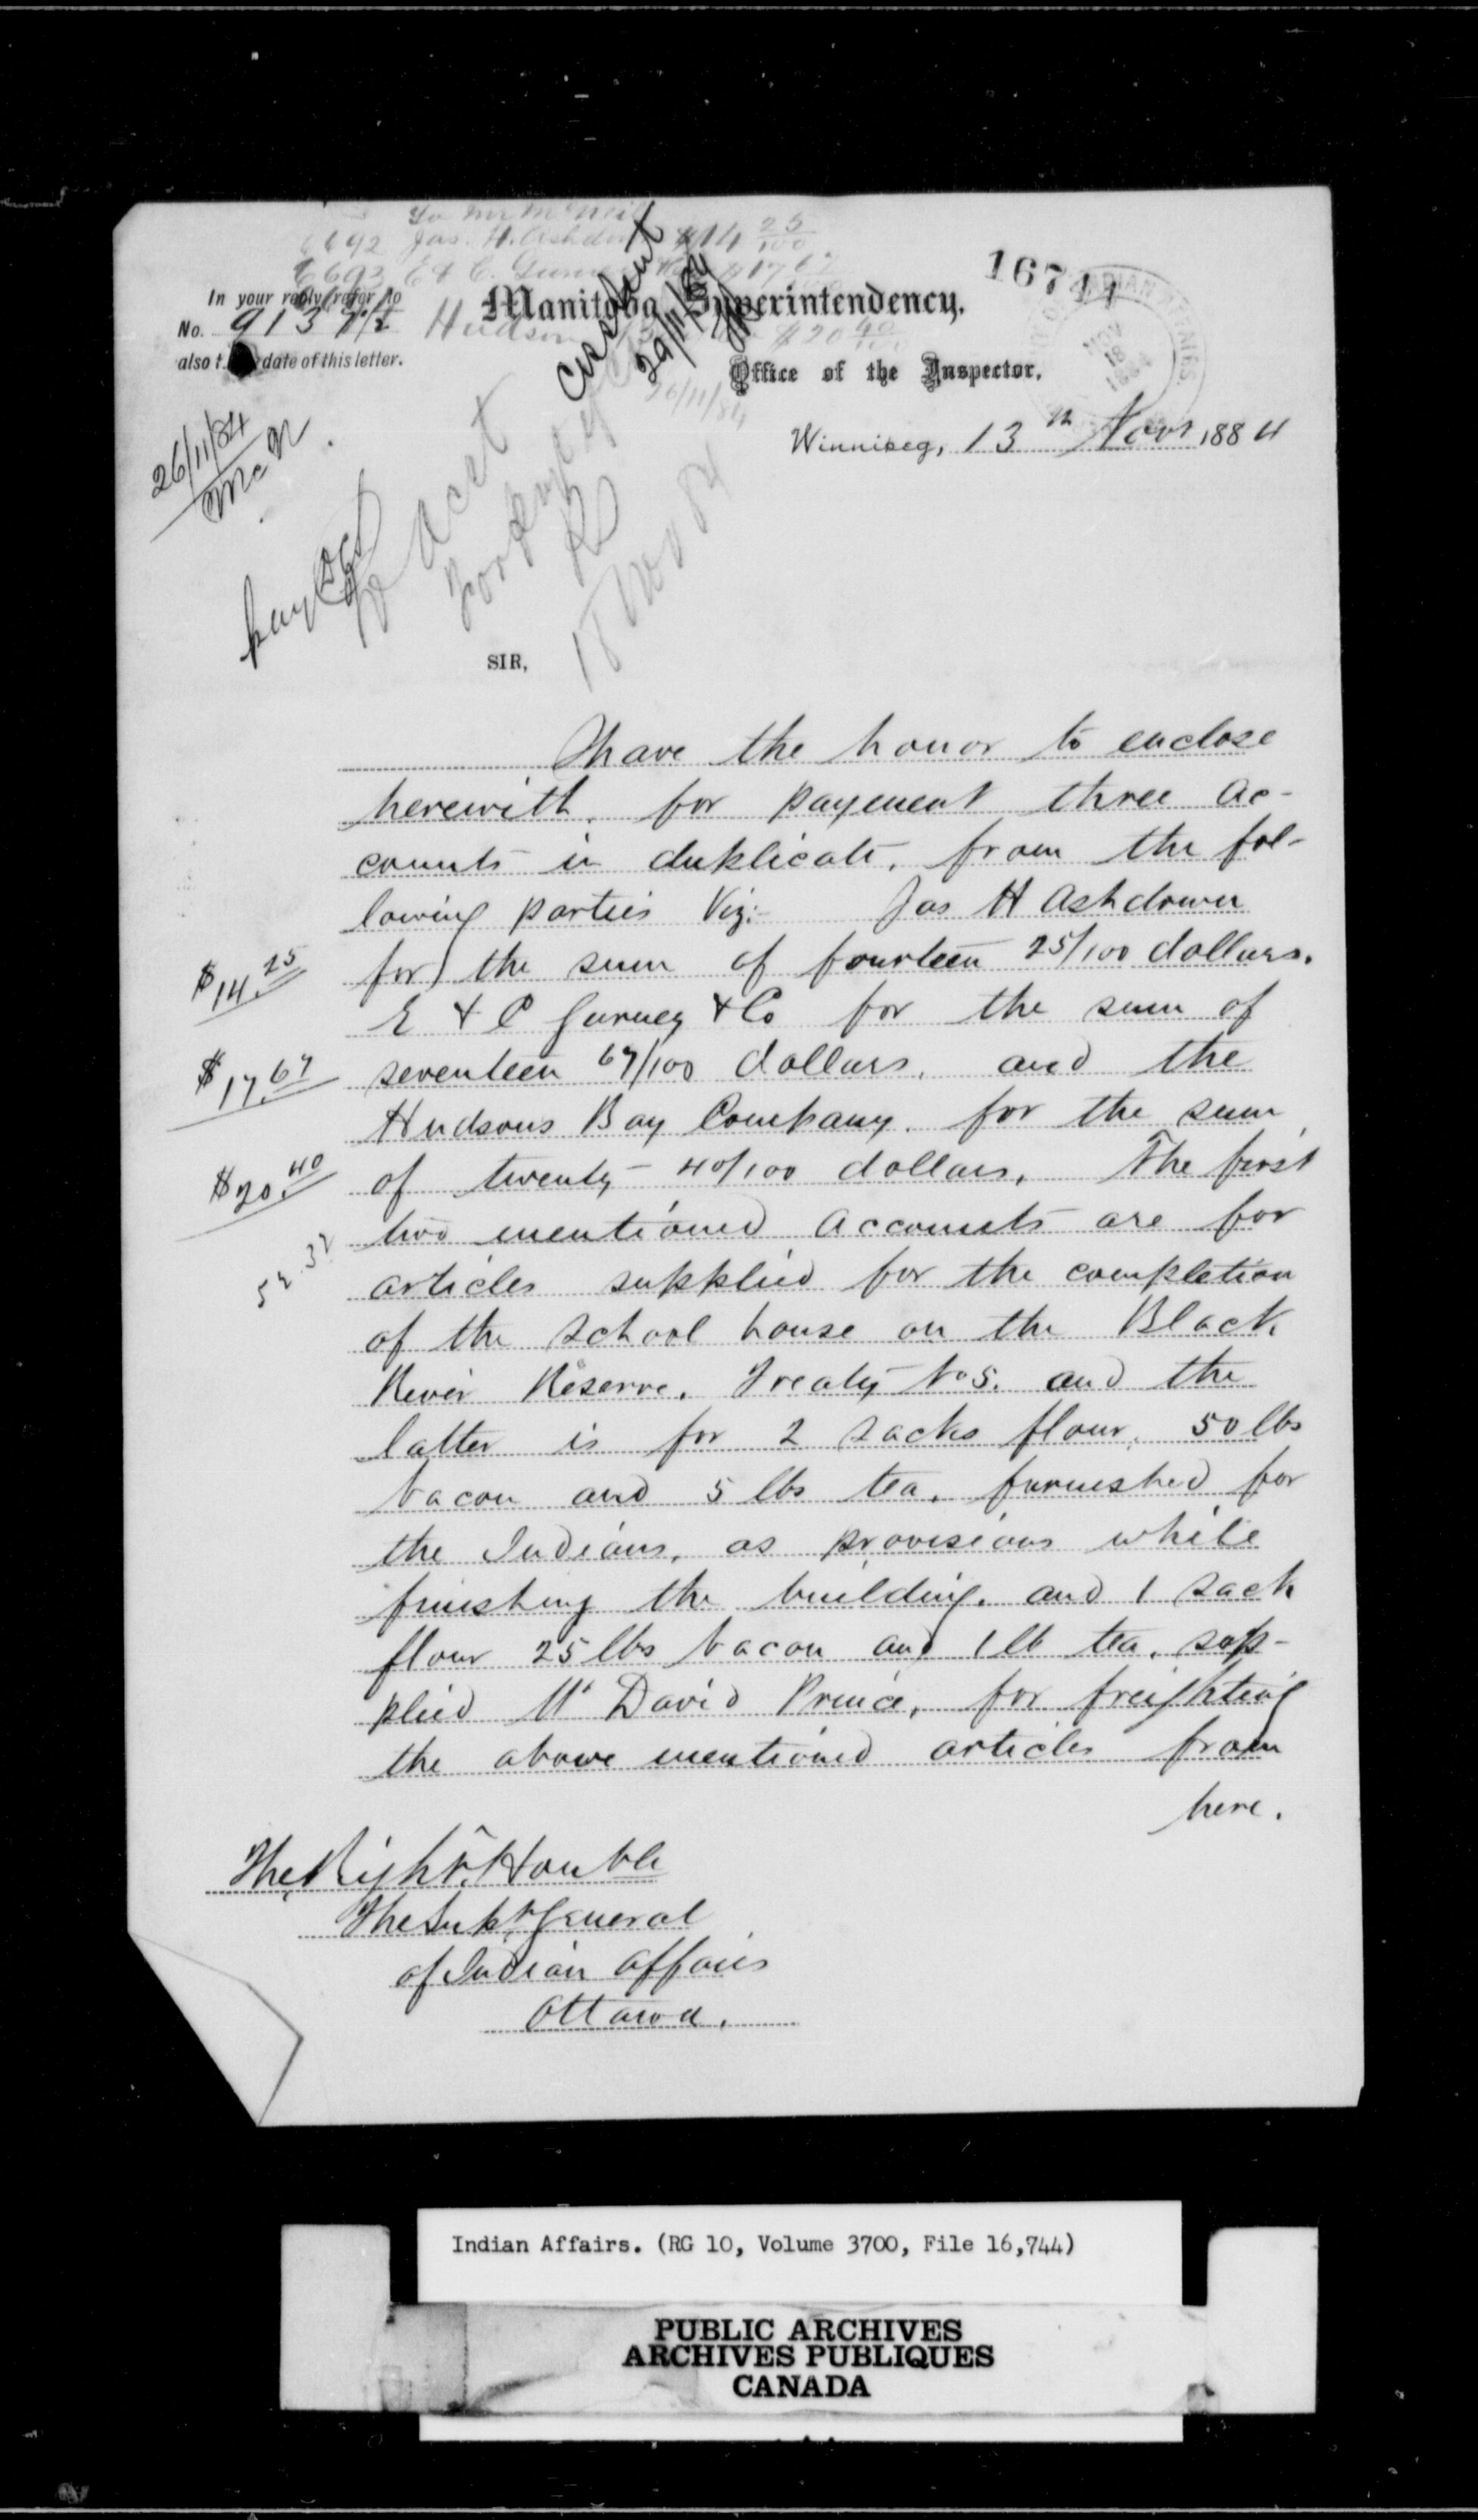 To Mr McNeil
6692 Jas. H. Ashdown $14 25/100
6693 E & C. Gurney $17 67
16744
In your reply refer to
No. 9137 1/2
also t date of this letter.
Manitoba Superintendency.
Hudson $20 40/100
Office of the Inspector.
29/11/84
26/11/84
Winnipeg, 13th Novr 1884
26/11/84
McN
pay
Acct
for payt
18 Nov 84
SIR,
I have the honor to enclose
herewith, for payment three ac-
counts in duplicate, from the fol-
lowing parties Viz:- Jas H Ashdown
$14.25 for the sum of fourteen 25/100 dollars.
E & C Gurney & Co for the sum of
$17.67 seventeen 67/100 dollars, and the
Hudsons Bay Company, for the sum
$20.40 of twenty - 40/100 dollars, The first
two mentioned accounts are for
52.32 articles supplied for the completion
of the school house on the Black
River Reserve, Treaty No 5. and the
latter is for 2 sacks flour, 50 lbs
bacon and 5 lbs tea, furnished for
the Indians, as provisions while
finishing the building, and 1 sack
flour 25 lbs bacon and 1 lb tea, sup-
plied Mr David Prince, for freighting
the above mentioned articles from
here.
The Right Honble
The Supt General
of Indian Affairs
Ottawa.
Indian Affairs. (RG 10, Volume 3700, File 16,744)
PUBLIC ARCHIVES
ARCHIVES PUBLIQUES
CANADA